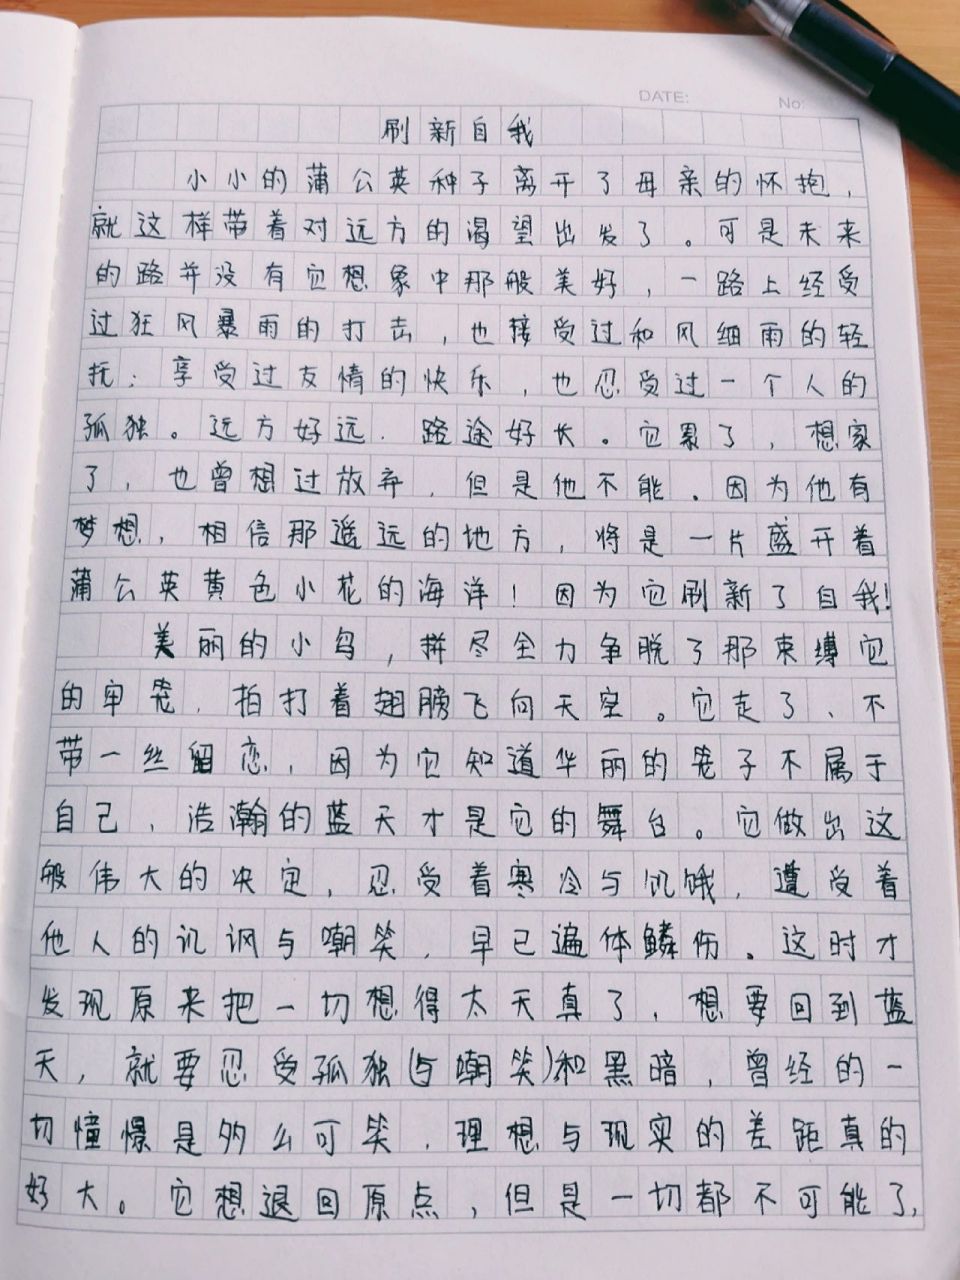 DATE:
No:
刷新自我
小小的蒲公英种子离开了母亲的怀抱，
就这样带着对远方的渴望出发了。可是未来
的路并没有它想象中那般美好，一路上经受
过狂风暴雨的打击，也接受过和风细雨的轻
抚；享受过友情的快乐，也忍受过一个人的
孤独。远方好远．路途好长。它累了，想家
了，也曾想过放弃，但是他不能．因为他有
梦想，相信那遥远的地方，将是一片盛开着
蒲公英黄色小花的海洋！因为它刷新了自我！
美丽的小鸟，拼尽全力争脱了那束缚它
的牢笼，拍打着翅膀飞向天空。它走了、不
带一丝留恋，因为它知道华丽的笼子不属于
自己，浩瀚的蓝天才是它的舞台。它做出这
般伟大的决定，忍受着寒冷与饥饿，遭受着
他人的讥讽与嘲笑，早已遍体鳞伤。这时才
发现原来把一切想得太天真了，想要回到蓝
天，就要忍受孤独(与嘲笑)和黑暗，曾经的一
切憧憬是多么可笑，理想与现实的差距真的
好大。它想退回原点，但是一切都不可能了，